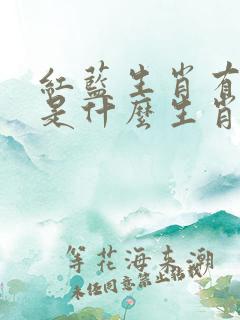 紅藍生肖有
是什麼生肖
等花海来潮
未经同意禁止搭载